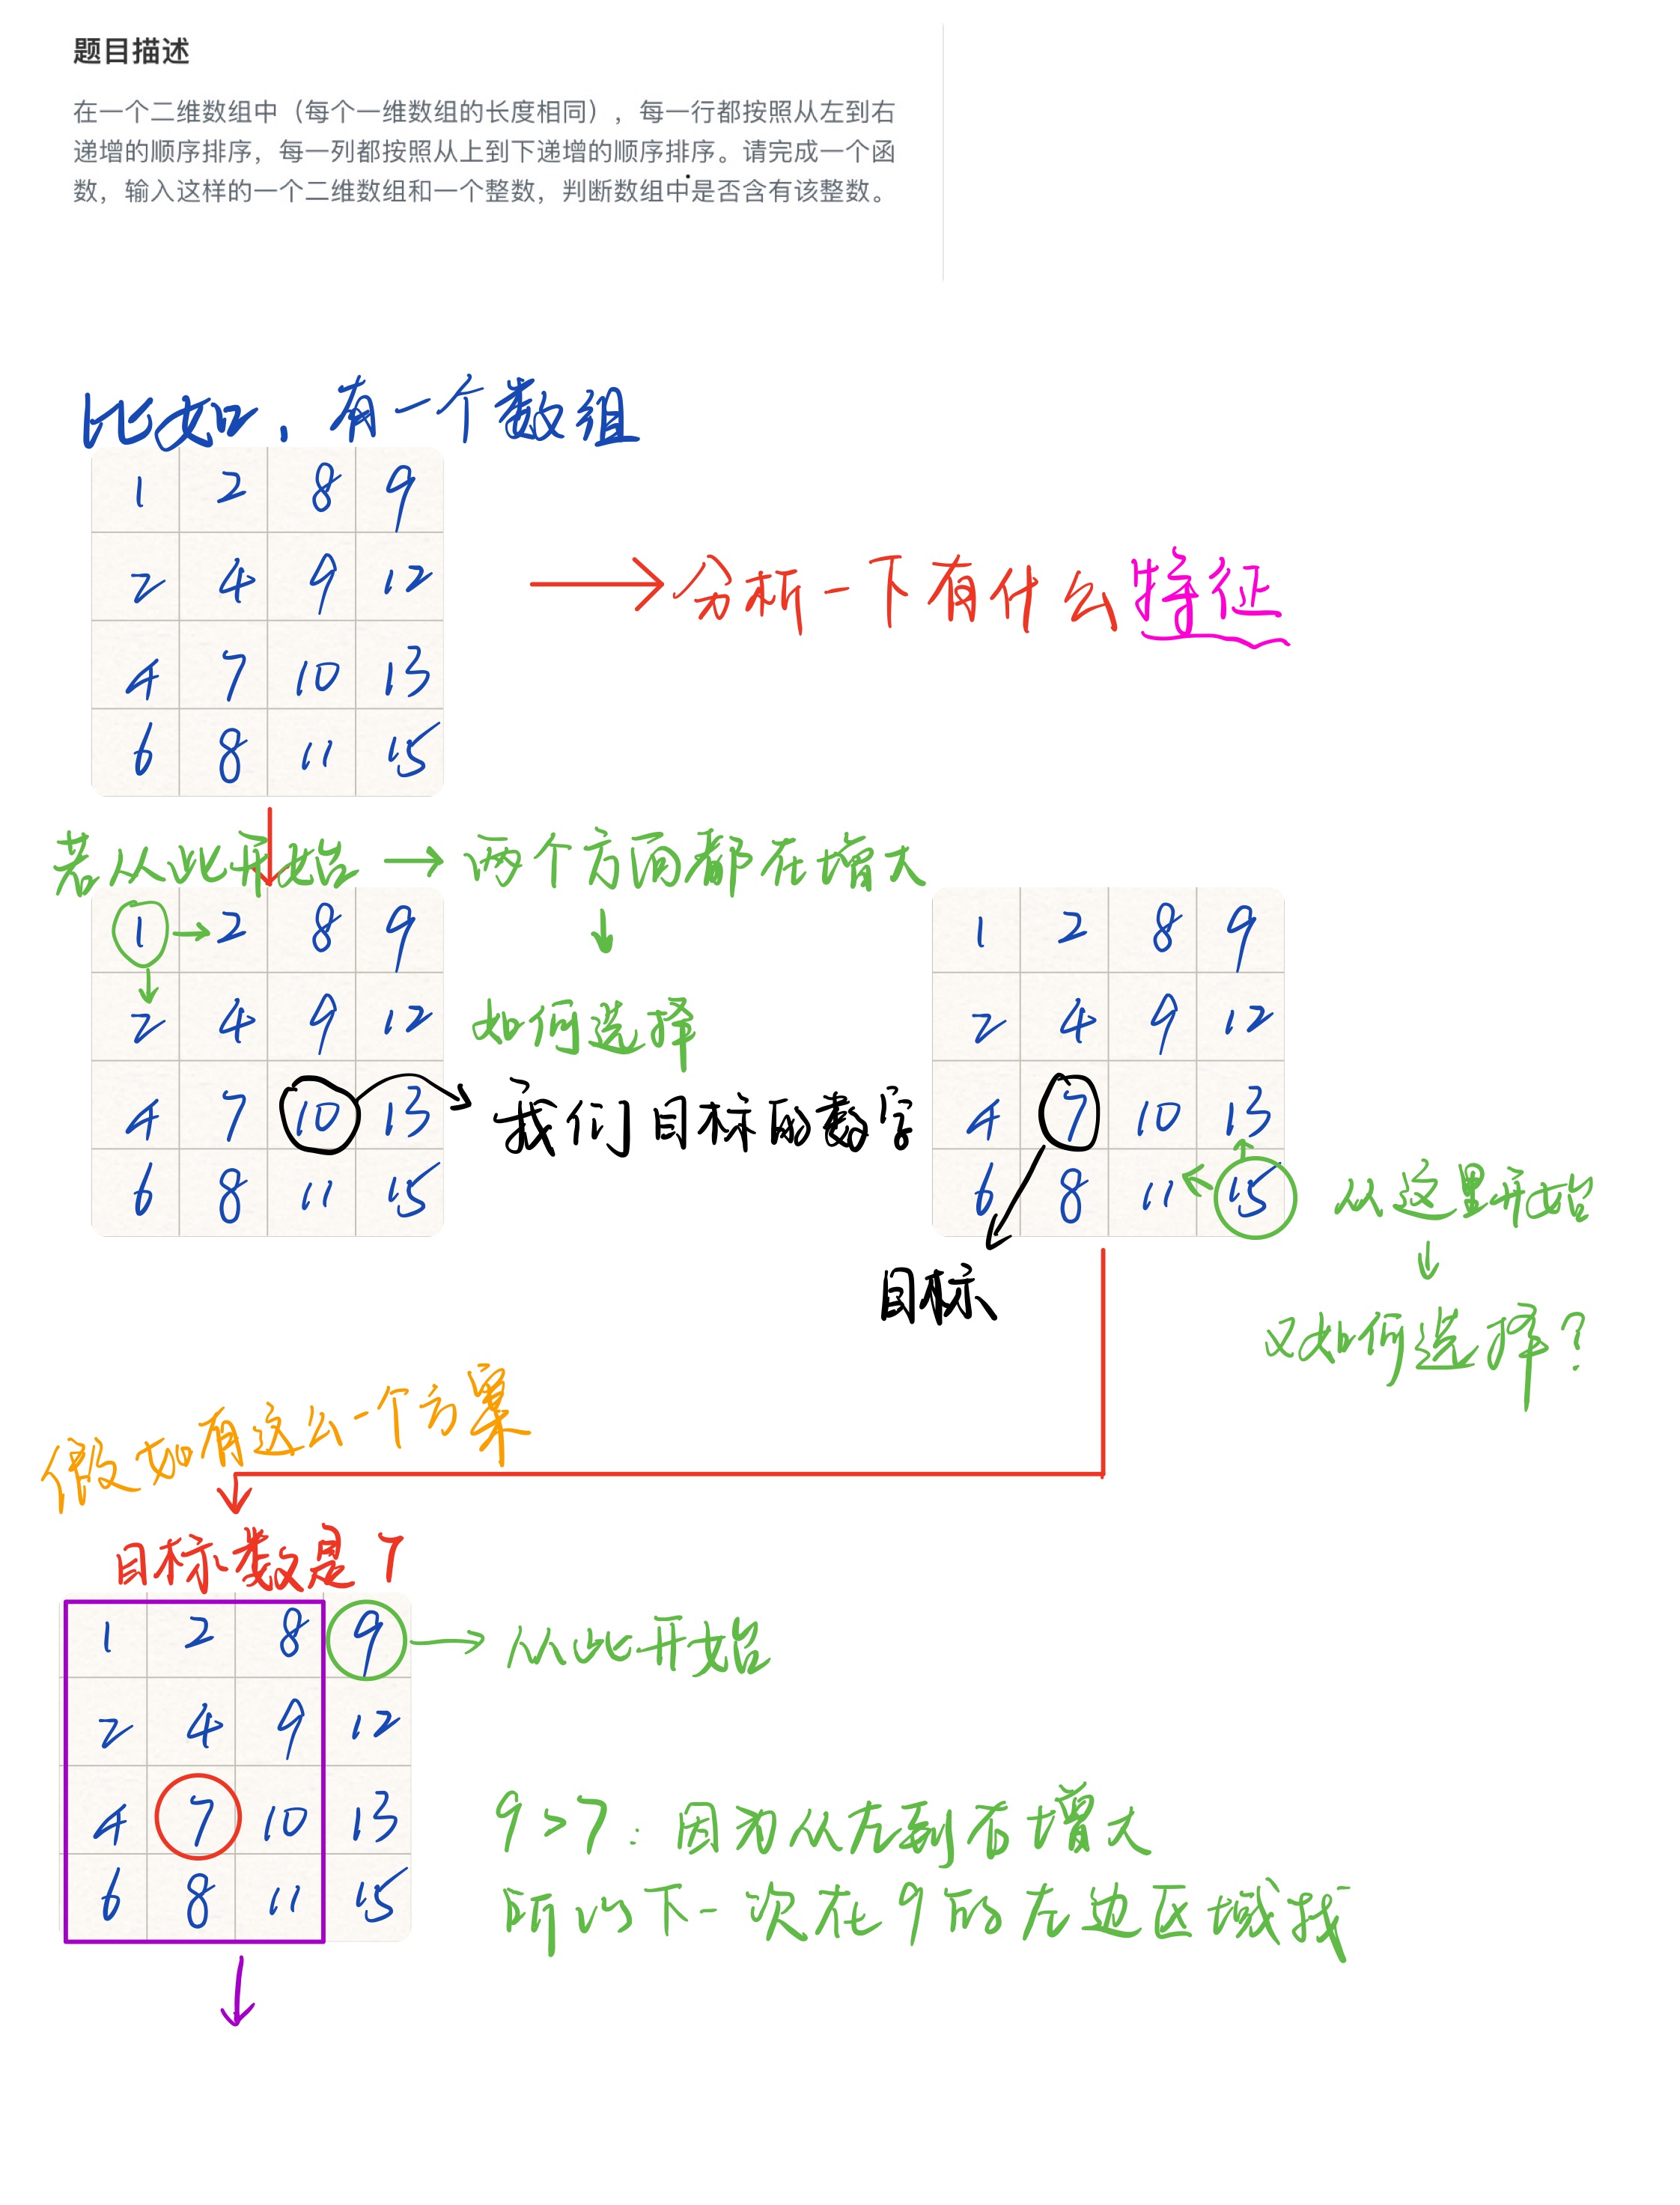 题目描述
在一个二维数组中（每个一维数组的长度相同），每一行都按照从左到右
递增的顺序排序，每一列都按照从上到下递增的顺序排序。请完成一个函
数，输入这样的一个二维数组和一个整数，判断数组中是否含有该整数。
比如，有一个数组
1 2 8 9
2 4 9 12
4 7 10 13
6 8 11 15
→分析一下有什么特征
若从此开始 → 两个方面都在增大
↓
如何选择
1 → 2 8 9
↓
2 4 9 12
4 7 10 13
6 8 11 15
我们目标的数字
1 2 8 9
2 4 9 12
4 7 10 13
6 8 11 15
从这里开始
↓
又如何选择？
目标
假如有这么一个方案
目标数是7
1 2 8 9 → 从此开始
2 4 9 12
4 7 10 13
6 8 11 15
9>7：因为从左到右增大
所以下一次在9的左边区域找